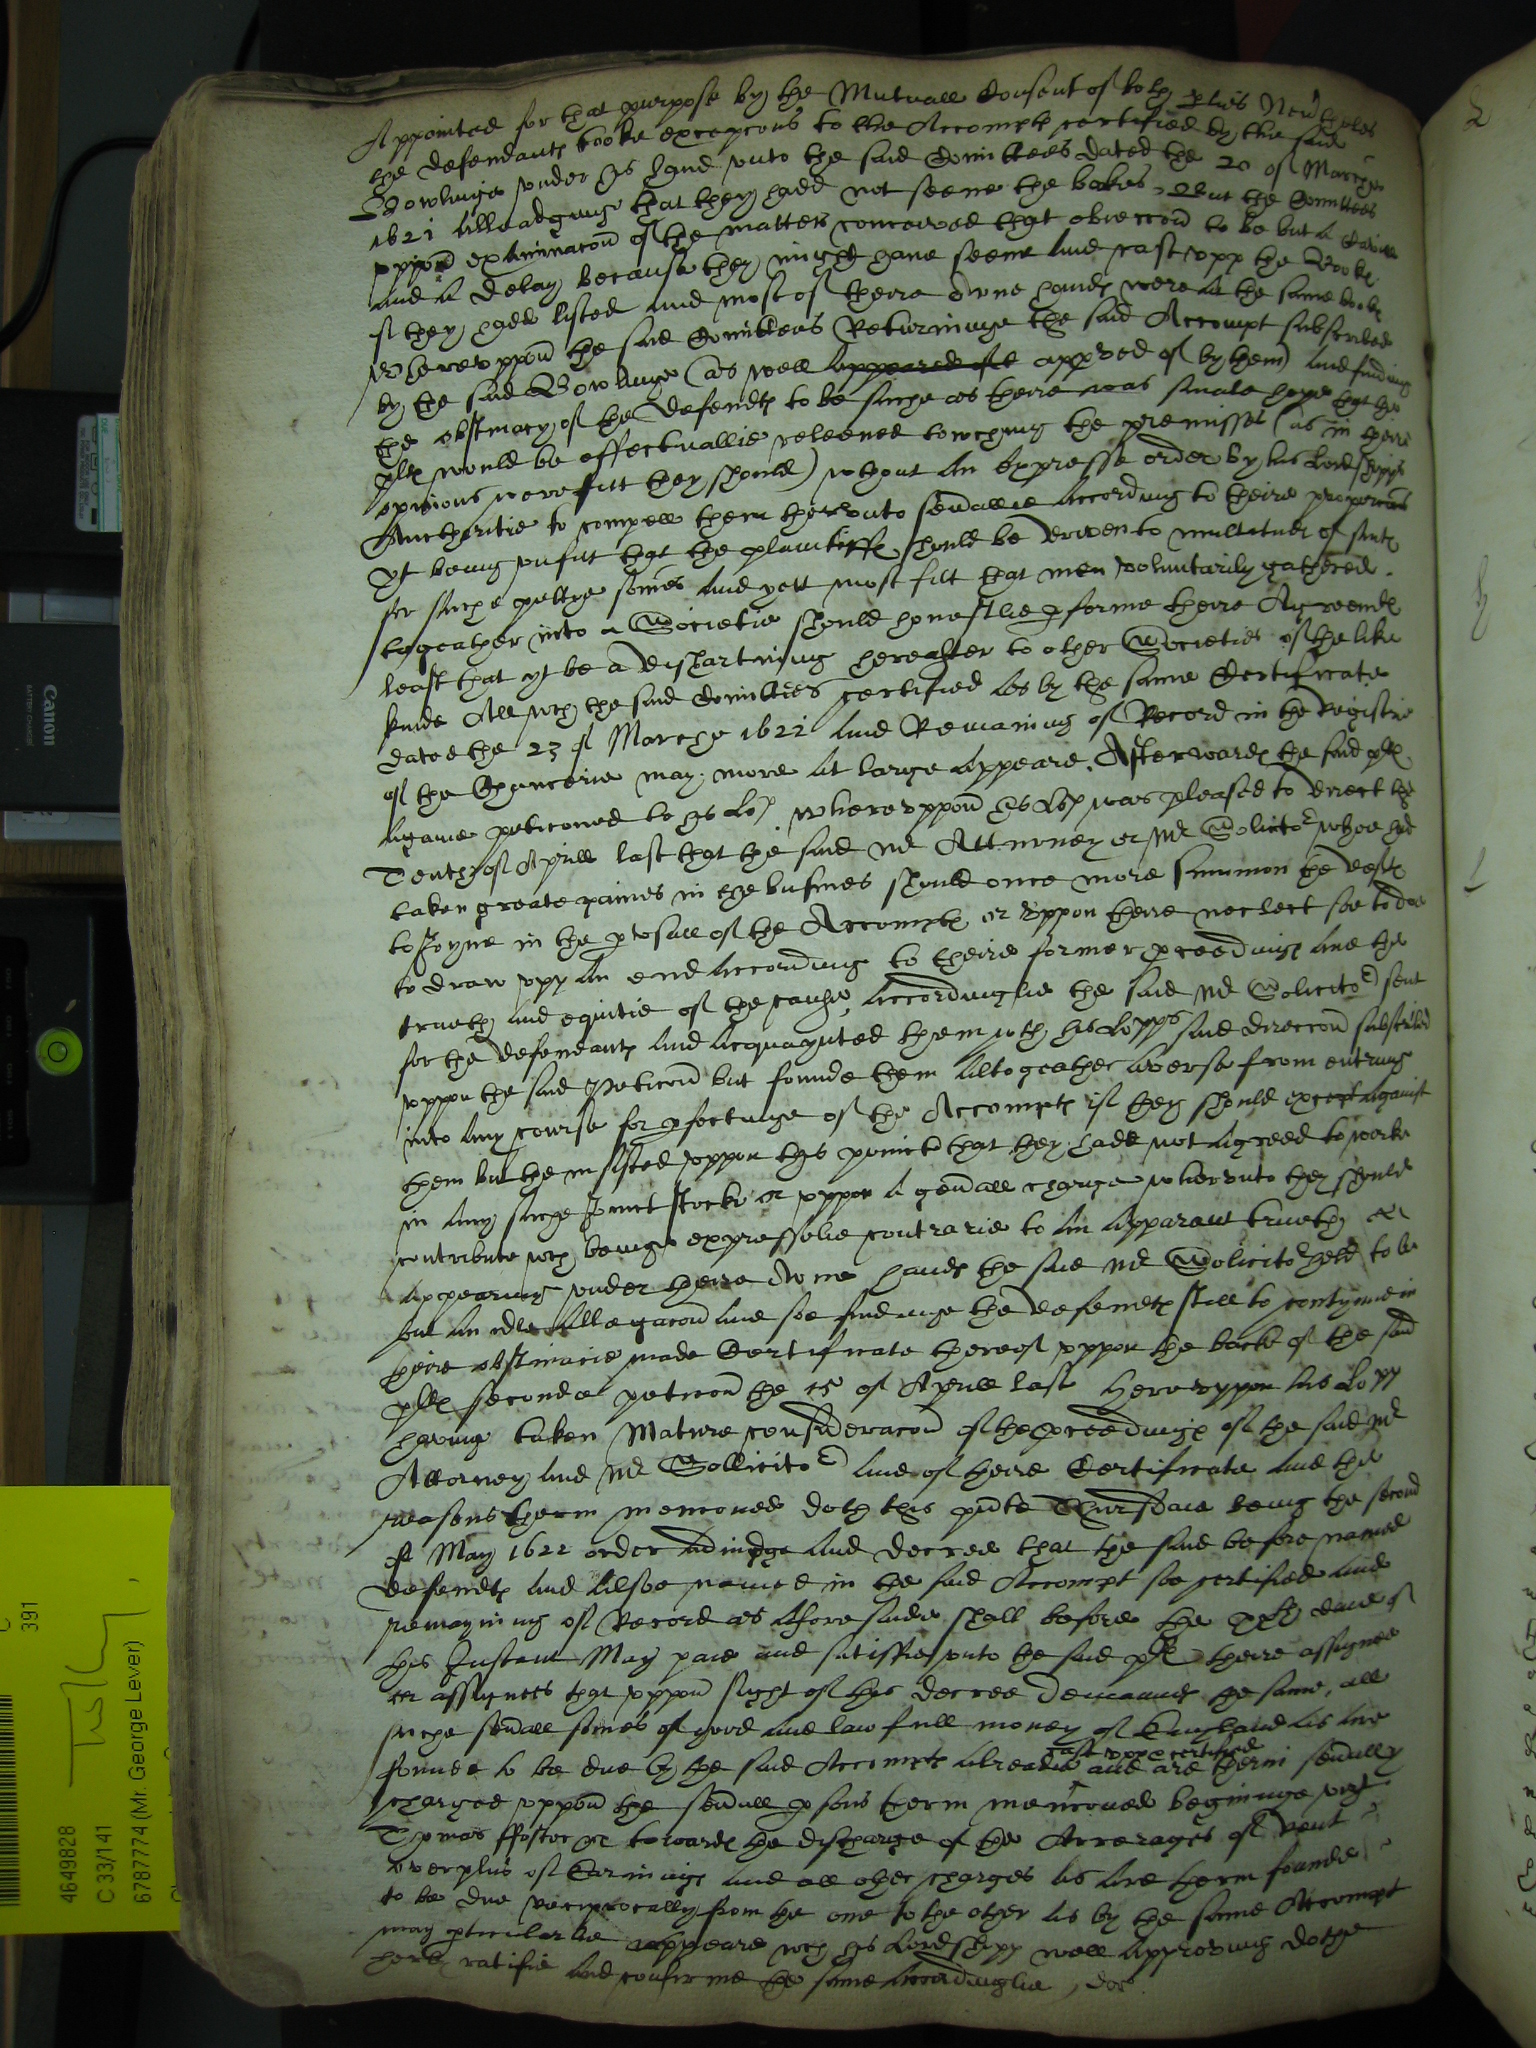 Appointed for that purpose by the Mutuall Consent of both p̱ties Neu'theles
the defendants tooke excepcons to the Accompt certified by the said
Bowlinge under his hand unto the said Comittees dated the 20 of Marche
1621 Alleadginge that they hadd not seene the bookes, But the Comittees
uppon examinacon of the matters conceived that obieccon to be but a Cavill
and a delay because they might have seene and cast upp the Bookes
if they hadd listed and most of theire owne hands were at the same books
Whereuppon the said Comittees Returninge the said Accompt subscribed
by the said Bowlinge (as well appeared of app̱ved of by them) and findinge
the obstinacy of the defendts to be suche as there was smale hope that the
pltes would be effectuallie releeved towching the premisses (as in theire
opinions were fitt they should) wthout an Expresse order by his Lordshipps
Aucthoritie to compell them thereunto sevallie according to theire proporcons
Yt being unfitt that the plaintiffes should be driven to multitude of suits
for suche pettye somes and yett most fitt that men voluntarily gathered
togeather into a Societie should honestlie p̱forme theire Agreemts
least that yt be a dishartning hereafter to other Societies of the like
kinde All wch the said Comittees certified As by the same Certificate
dated the 23 of Marche 1621 And Remaining of Record in the Registrie
of the Chancerie may more at large Appeare. Afterwards the said plts
Againe peticoned to his Lop whereuppon his Lop was pleased to direct the
Tenth of Aprill last that the said Mr Attorney or Mr Solicitor whoe had
taken greate paines in the busines should once more summon the defts
to Joyne in the p̱usall of the Accompts or uppon theire neclect soe to doe
to draw upp an end According to theire former p̱ceedings and the
trueth and equitie of the cause, Accordinglie the said Mr Solicitor sent
for the defendants and Acquaynted them wth his Lopps said direccon subscribed
uppon the said Peticon but founde them Altogeather averse from entring
into any course for p̱fectinge of the Accompts if they should except against
them but the insisted uppon this pointe that they hadd not Agreed to worke
in any suche Joinct stocke or uppon a genall charge whereunto they should
contribute wch beinge expresselie contrarie to an Apparant trueth
Appearing under theire owne hands the said Mr Solicitor held to be
but an idle Allegacon and soe findinge the defendts still to contynue in
theire obstinacie made Certificate thereof uppon the back of the said
plts seconde peticon the 15 of Aprill last Hereuppon his Lopp
having taken Mature consideracon of the p̱ceedings of the said Mr
Attorney and Mr Sollicitor and of theire Certificate and the
reasons therin mencioned doth this p̱nte Thursdaie being the second
of May 1622 order adiudge and decree that the said before named
defendts and Allsoe named in the said Accompt soe certified and
remayning of Record as aforesaide shall before the daie of
this Instant May paie and satisfie unto the said plts theire assignee
or assignees that uppon sight of this decree demaunds the same, all
suche sevall somes of good and lawfull money of England as are
founde to be due by the said Accompts already cast upp & certified and are therin sevally
charged uppon the sevall p̱sons therin mencioned beginninge wth
Thomas ffoster & towards the discharge of the Arrerages of Rent
overplus of Earnings and all other charges as are therin founde
to be due reciprocally from the one to the other as by the same Accompt
may p̱ticularlie appeare wch his Lordshipp well Approving dothe
hereby ratifie and confirme the same Accordinglie,
Canon
BATTERY CHARGER
391
4649828
C 33/141
67877 74 (Mr. George Lever)